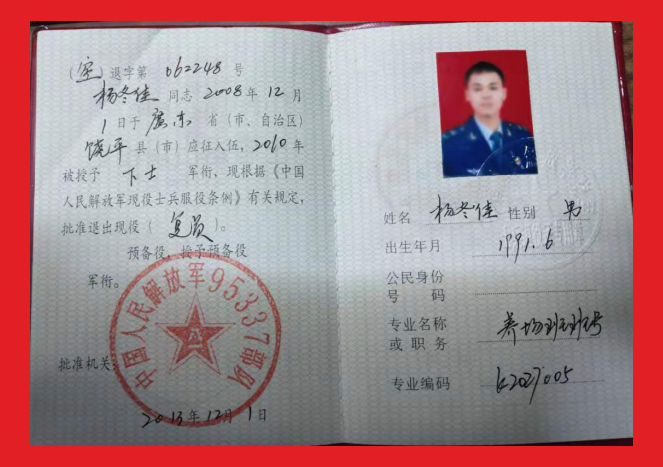 (空)退字第 062248 号
杨冬佳 同志 2008年12月
1日于广东省(市、自治区)
饶平县(市)应征入伍,2010年
被授予 下士 军衔,现根据《中国
人民解放军现役士兵服役条例》有关规定,
批准退出现役(复员)。
预备役,授予预备役
军衔。
中国人民解放军95337部队
批准机关:
2013年12月1日
姓名 杨冬佳 性别 男
出生年月 1991.6
公民身份
号码
专业名称
或职务
专业编码